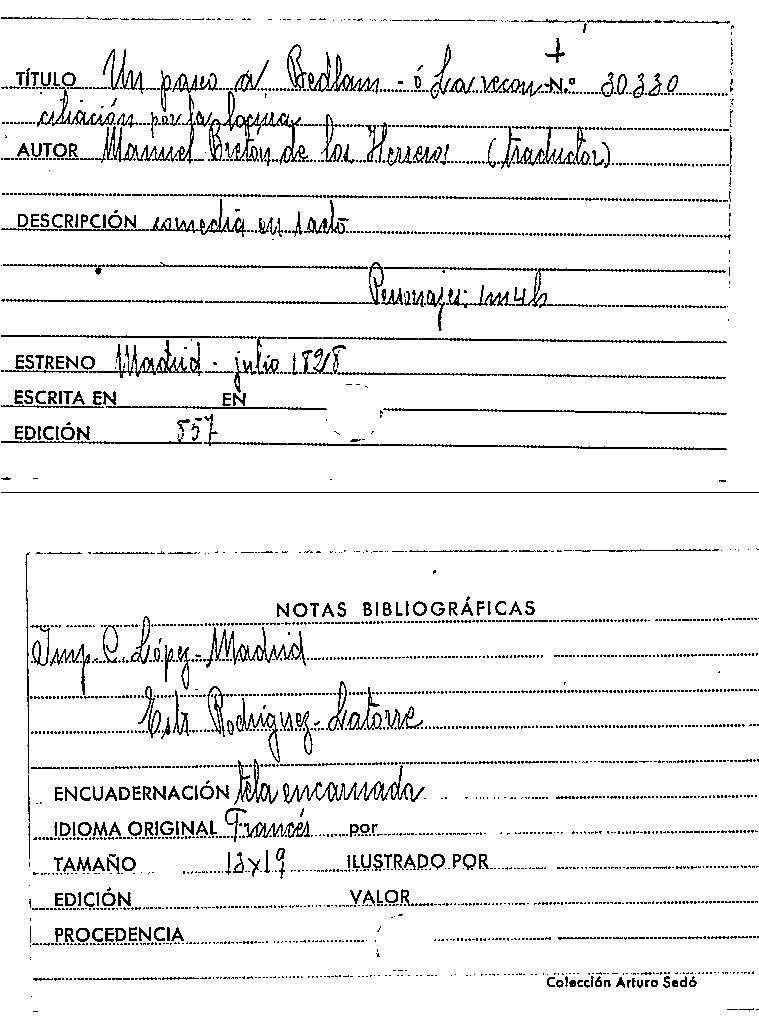 TÍTULO Un paseo a Bedlam - ó La recon- N.º 30330
ciliación por la locura
AUTOR Manuel Bretón de los Herreros (traductor)
DESCRIPCIÓN comedia en 1 acto
Personajes: 1m4h
ESTRENO Madrid - julio 1828
ESCRITA EN EN
EDICIÓN 857
NOTAS BIBLIOGRÁFICAS
Imp. C. López - Madrid
Estr Rodríguez - Latorre
ENCUADERNACIÓN tela encarnada
IDIOMA ORIGINAL Francés por
TAMAÑO 13x19 ILUSTRADO POR
EDICIÓN VALOR
PROCEDENCIA
Colección Arturo Sedó